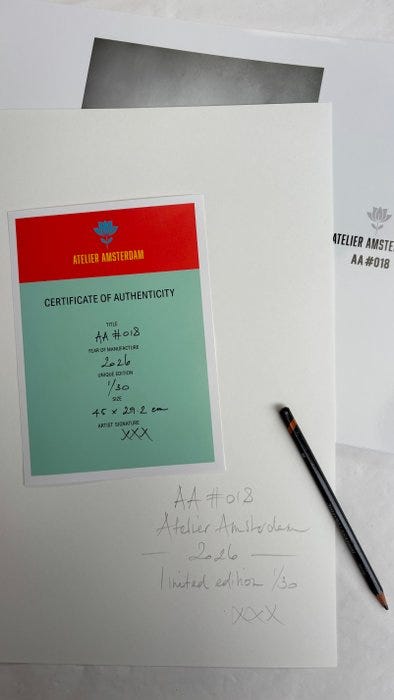 ATELIER AMSTE
AA#018
ATELIER AMSTERDAM
CERTIFICATE OF AUTHENTICITY
TITLE
AA #018
YEAR OF MANUFACTURE
2026
UNIQUE EDITION
1/30
SIZE
45 x 29.2 cm
ARTIST SIGNATURE
XXX
AA #018
Atelier Amsterdam
— 2026 —
limited edition 1/30
XXX